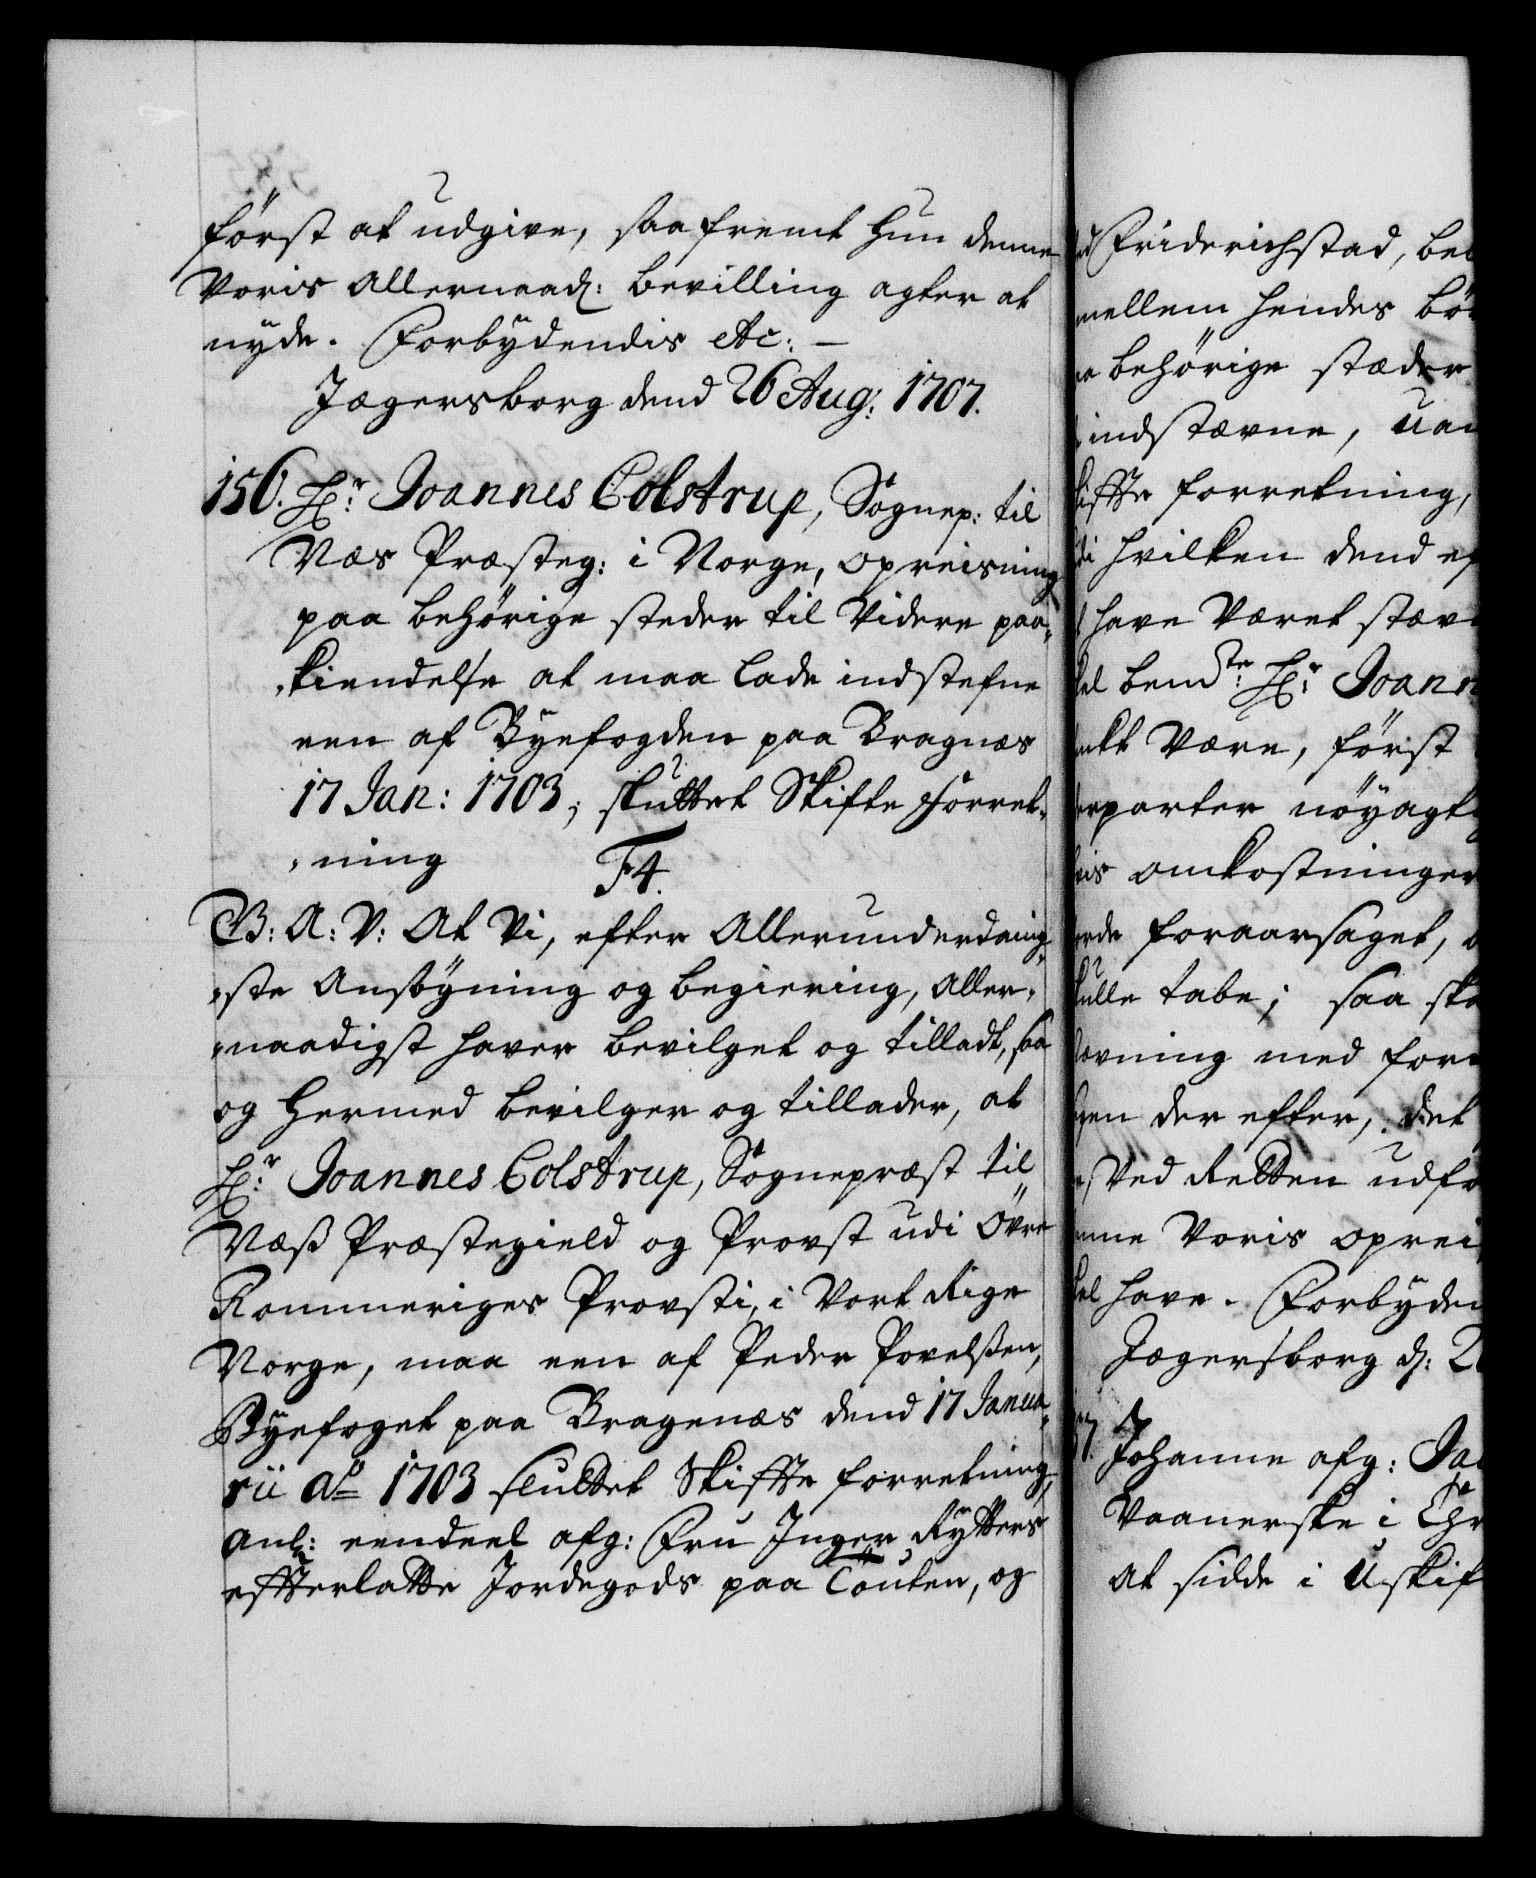 först at udgive, saafremt hun denne
Voris allernaad: bevilling agter at
nyde. Forbydendis etc: —
Jægersborg dend 26 Aug: 1707.
156. Hr: Joannes Colstrup, Sognep: til
Næs Præsteg: i Norge, opreisning
paa behörige steder til videre paa-
kiendelse at maa lade indstefne
een af Byefogden paa Bragnæs
17 Jan: 1703, sluttet Skifte forret-
ning F4.
G: A: V: At Vi, efter allerunderdanig-
ste Ansögning og begiering, aller-
naadigst haver bevilget og tilladt, saa
og hermed bevilger og tillader, at
Hr: Joannes Colstrup, Sognepræst til
Næss Præstegield og Provst udi Övre
Rommeriges Provsti, i Vort Rige
Norge, maa een af Peder Povelssen,
Byefoget paa Bragenæs dend 17 Janua-
rii Ao 1703 sluttet Skiffte forretning,
anl: eendeel afg: Fru Inger Rytters
effterlatte Jordegods paa Touten, og
Friderichstad, be
mellem hendes bö
behörige stæder
indstævne, uan
forretning,
hvilken dend ef
have Været stæv
bemdte: Hr: Joann
Være, först
nöyagt
omkostninger
foraarsaget,
tabe; saa ska
med for
der efter, det
Ved Retten udfö
Voris oprei
have. Forbyden
Jægersborg d: 2
Johanne afg: Ja
Vaanerske i Chr
at sidde i Uskif